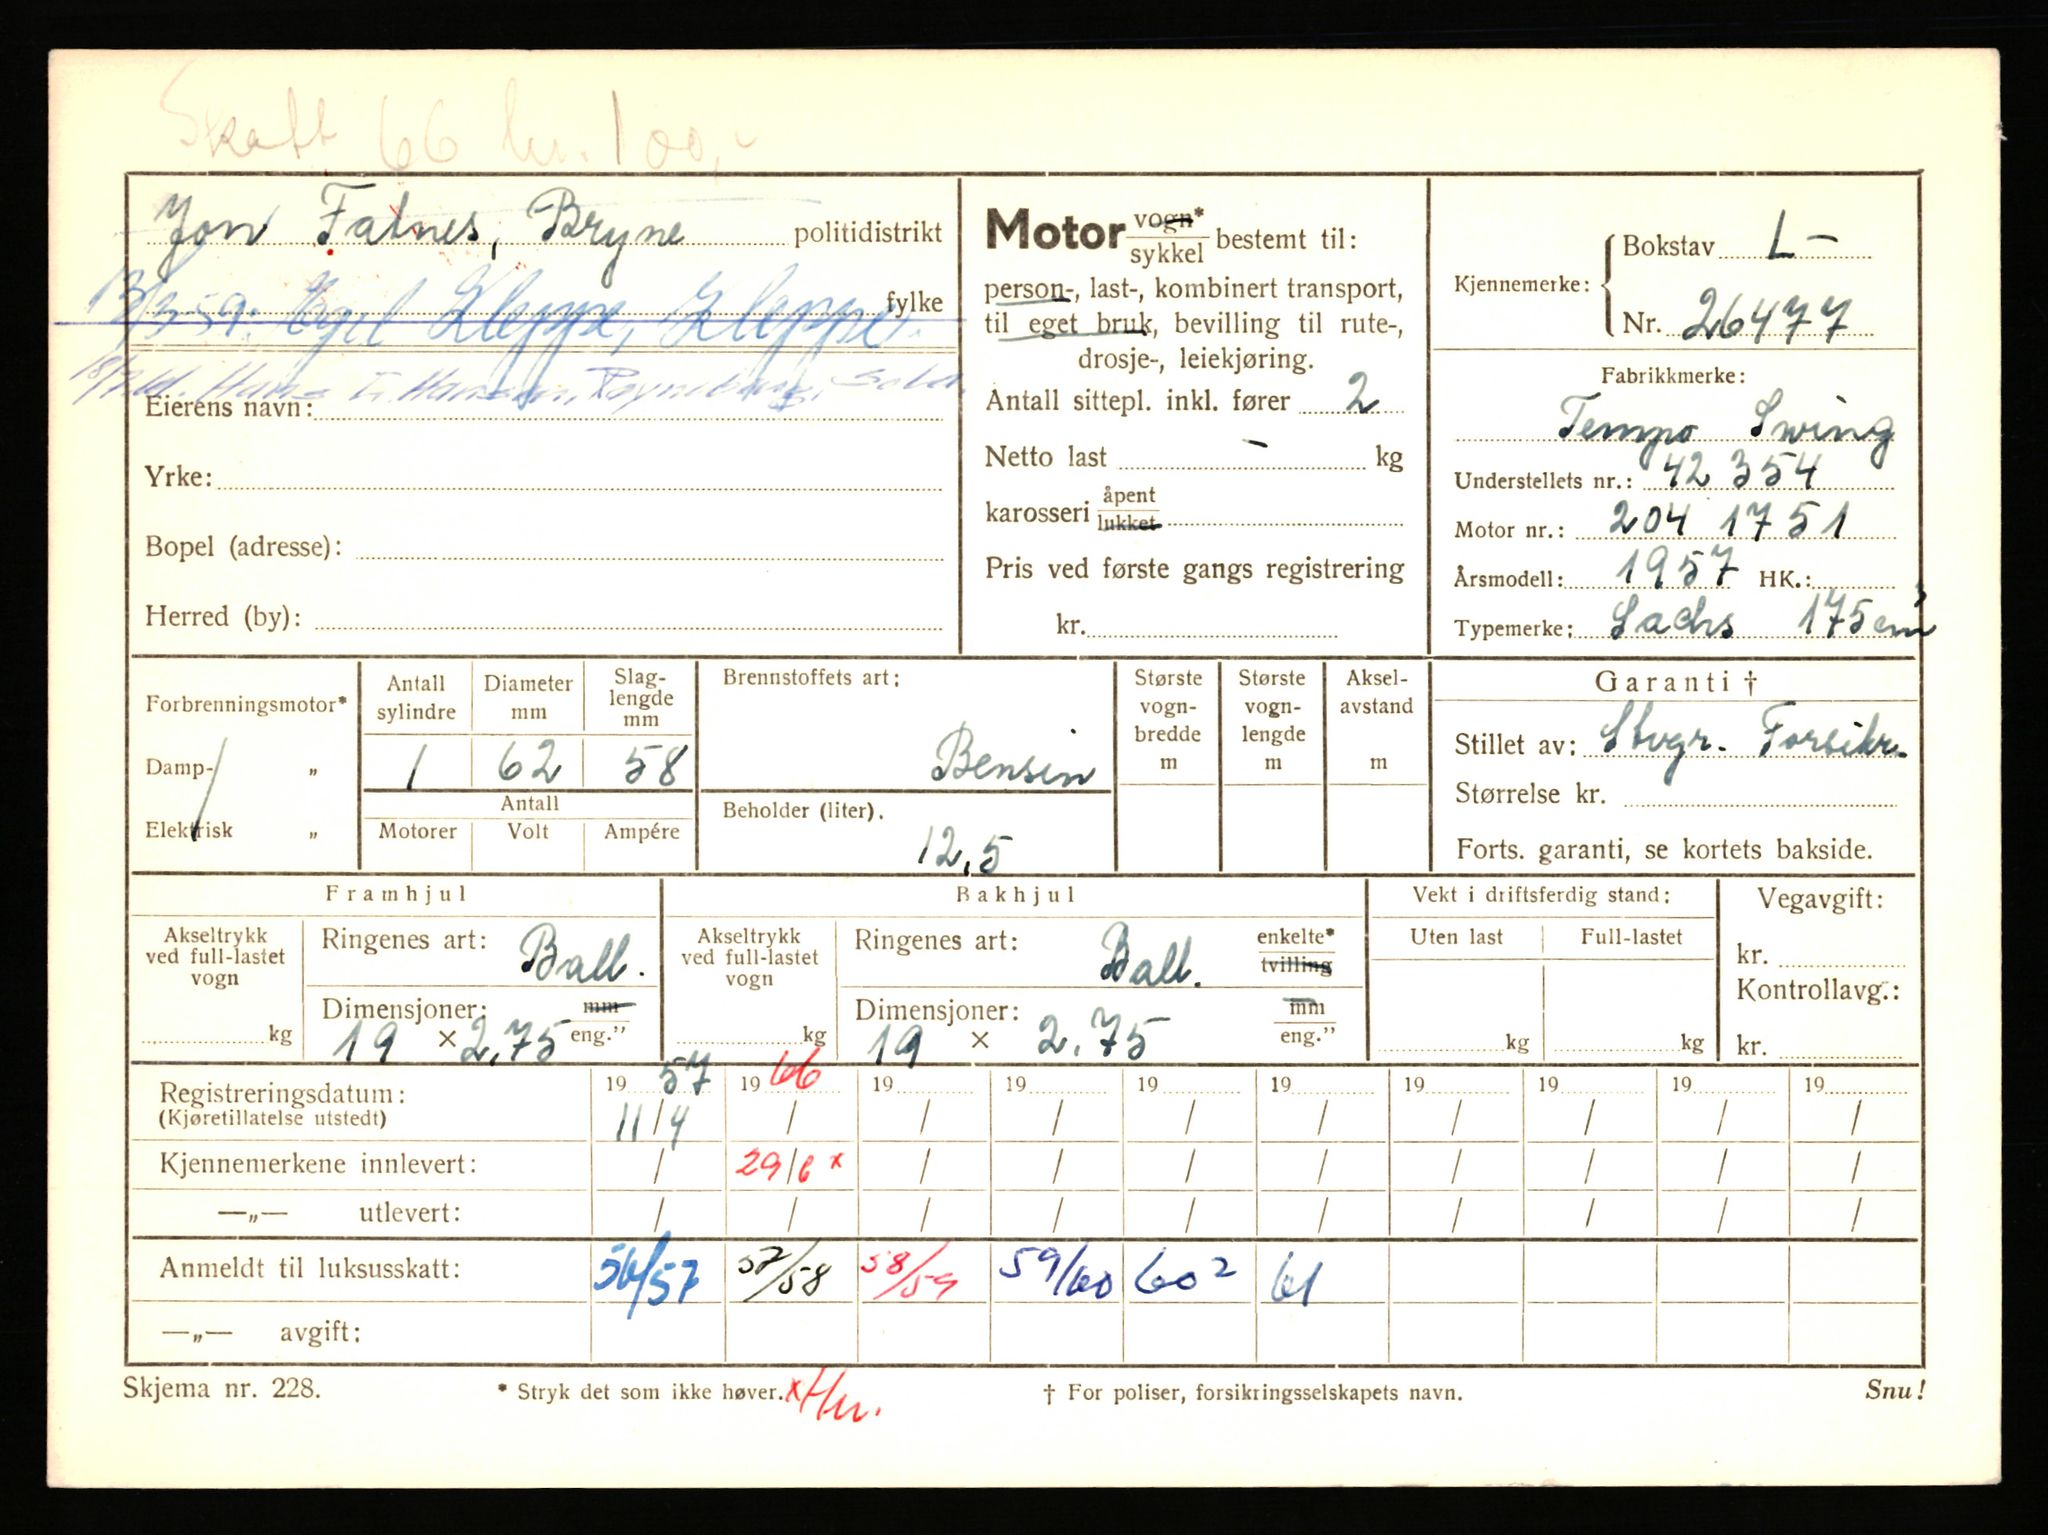 Skatt 66 kr. 100,-
Jon Fatnes, Bryne politidistrikt
13/3 59. Egil Kleppe, Kleppe. fylke
Hans Hansen, Røyneberg, Sola.
Eierens navn:
Yrke:
Bopel (adresse):
Herred (by):
Motor vogn* / sykkel bestemt til:
person-, last-, kombinert transport,
til eget bruk, bevilling til rute-,
drosje-, leiekjøring.
Antall sittepl. inkl. fører 2
Netto last - kg
karosseri åpent / lukket
Pris ved første gangs registrering
kr.
Kjennemerke: { Bokstav L-
Nr. 26477
Fabrikkmerke:
Tempo Swing
Understellets nr.: 42 354
Motor nr.: 204 1751
Årsmodell: 1957 HK.:
Typemerke: Sachs 175 cm³
Forbrenningsmotor*
Damp- „
Elektrisk „
Antall sylindre 1
Diameter mm 62
Slag- lengde mm 58
Antall
Motorer Volt Ampére
Brennstoffets art:
Bensin
Beholder (liter).
12,5
Største vogn- bredde m
Største vogn- lengde m
Aksel- avstand m
Garanti †
Stillet av: Stvgr. Forsikr.
Størrelse kr.
Forts. garanti, se kortets bakside.
Framhjul
Akseltrykk ved full-lastet vogn kg
Ringenes art: Ball.
Dimensjoner: mm / eng.”
19 × 2,75
Bakhjul
Akseltrykk ved full-lastet vogn kg
Ringenes art: Ball. enkelte* / tvilling
Dimensjoner: mm / eng.”
19 × 2.75
Vekt i driftsferdig stand:
Uten last Full-lastet
kg kg
Vegavgift:
kr.
Kontrollavg.:
kr.
Registreringsdatum: 19 57 19 66 19 19 19 19 19 19 19 19
(Kjøretillatelse utstedt) 11/4 / / / / / / / / /
Kjennemerkene innlevert: / 29/6 x / / / / / / / /
—„— utlevert: / / / / / / / / / /
Anmeldt til luksusskatt: 56/57 57/58 58/59 59/60 60² 61
—„— avgift:
Skjema nr. 228. * Stryk det som ikke høver. † For poliser, forsikringsselskapets navn. Snu!